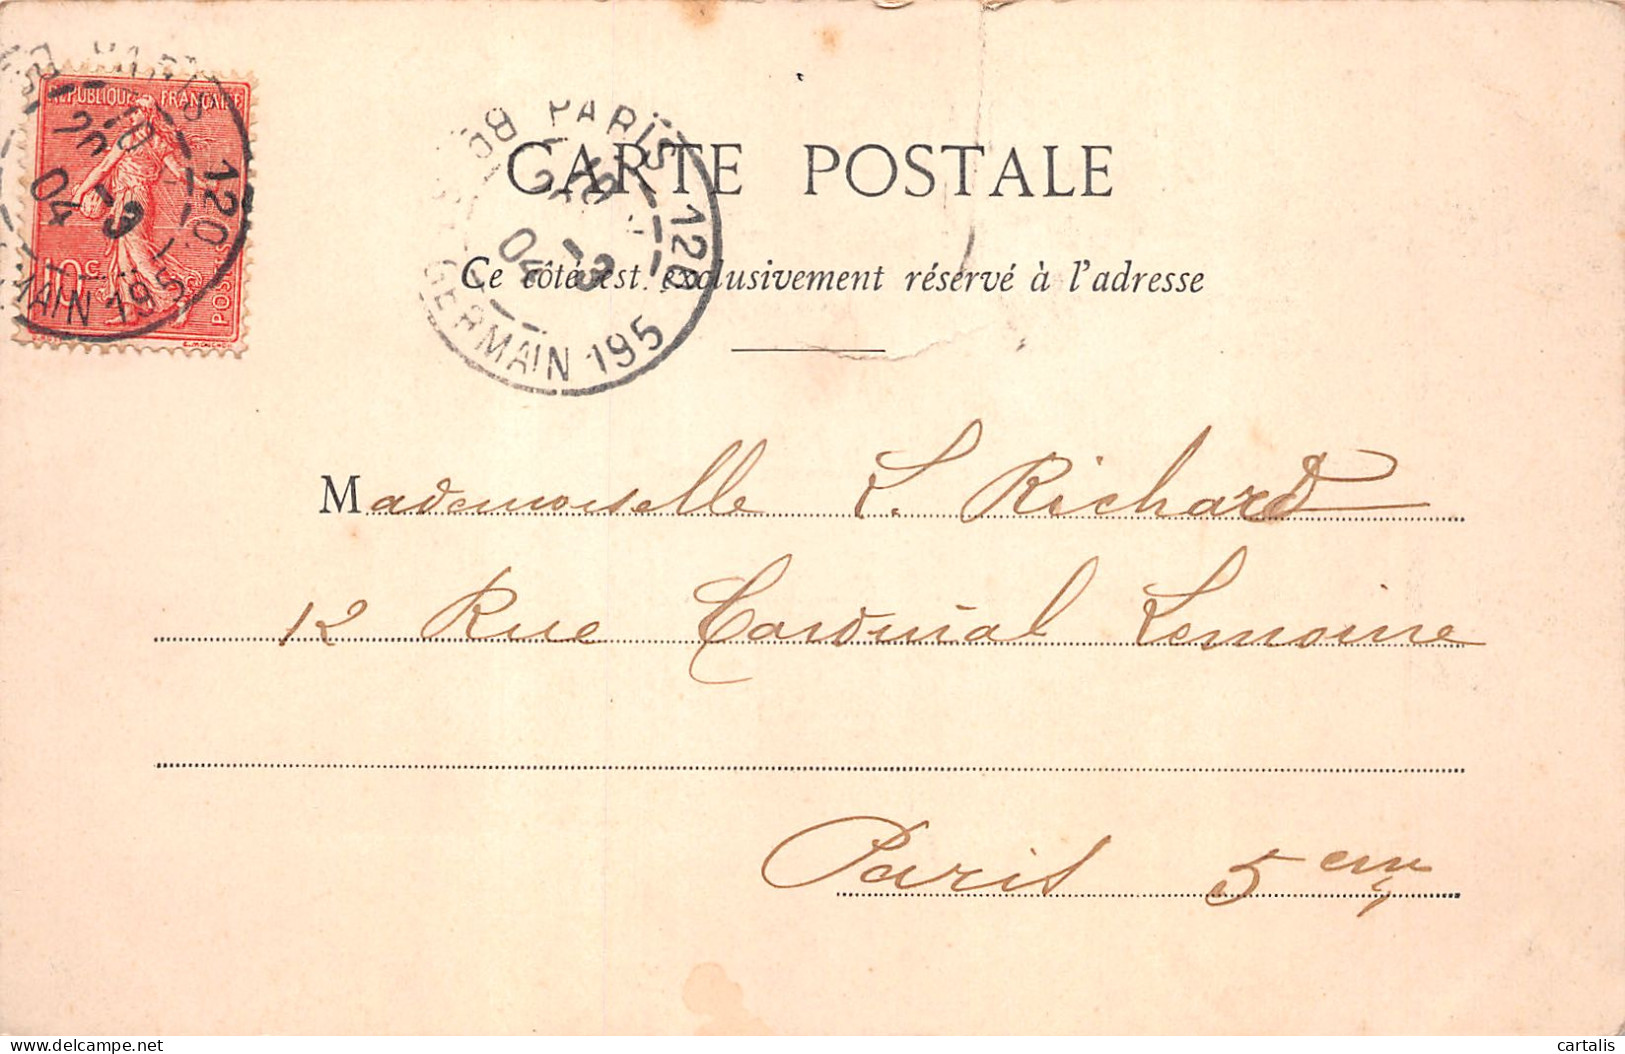 REPUBLIQUE FRANÇAISE
10c
POSTES
PARIS 120
GERMAIN 195
04
CARTE POSTALE
Ce côté est exclusivement réservé à l'adresse
Mademoiselle L. Richard
12 Rue Cardinal Lemoine
Paris 5em
cartalis